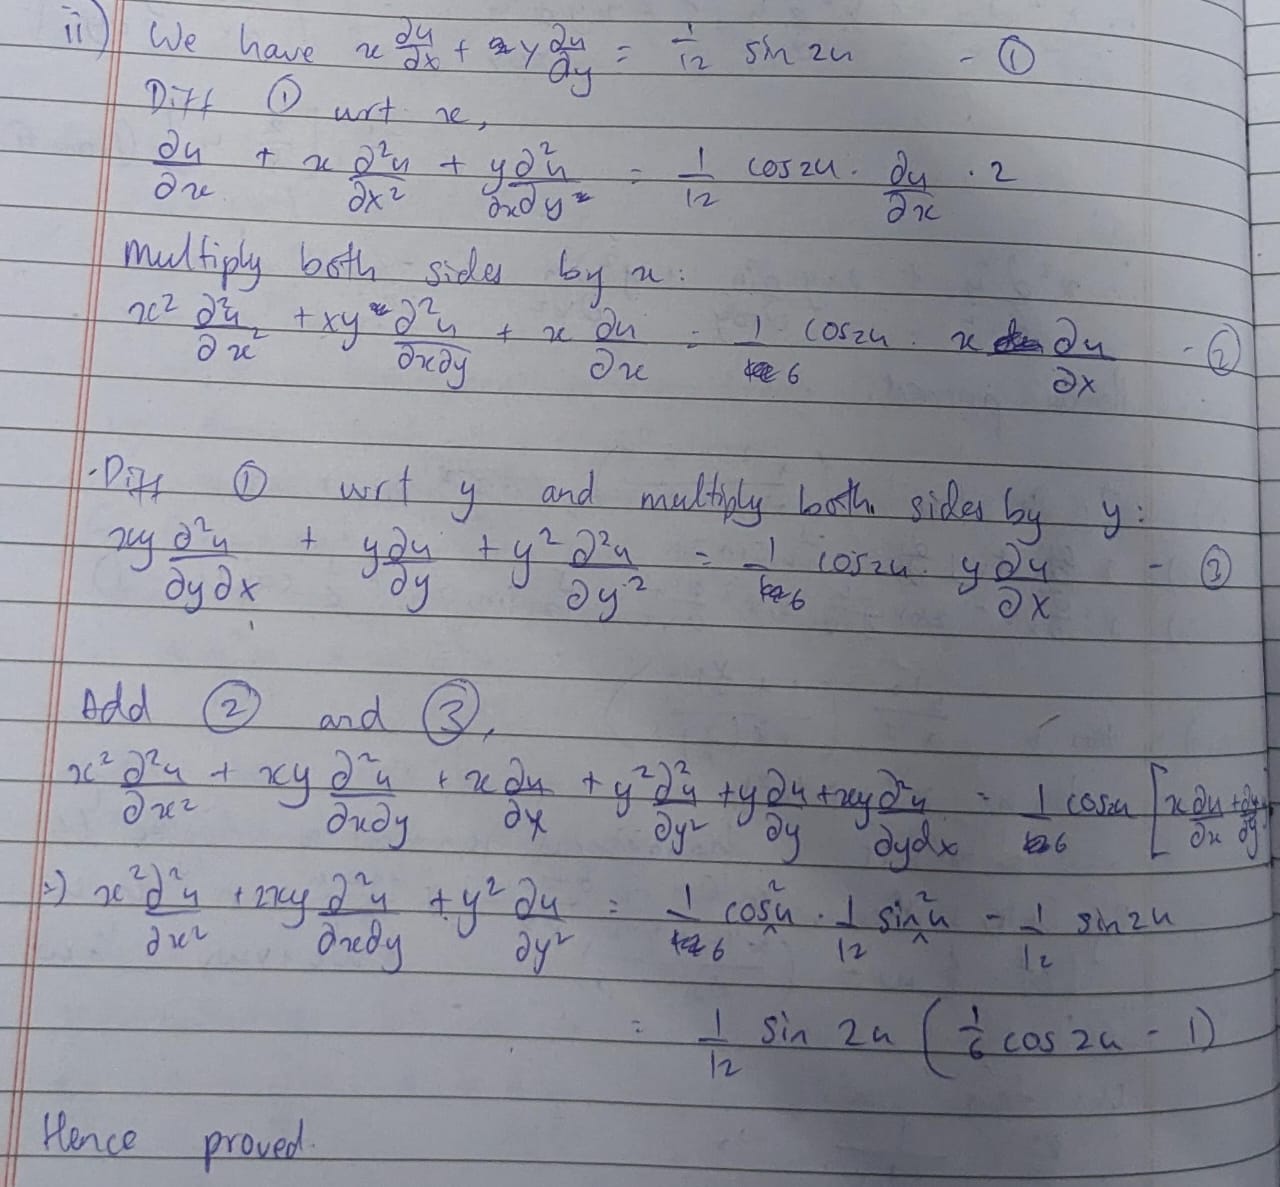 ii) We have x ∂u/∂x + y ∂u/∂y = 1/12 sin 2u - ①
Diff ① wrt x,
∂u/∂x + x ∂²u/∂x² + y ∂²u/∂x∂y = 1/12 cos2u . ∂u/∂x . 2
Multiply both sides by x:
x² ∂²u/∂x² + xy ∂²u/∂x∂y + x ∂u/∂x = 1/6 cos2u . x ∂u/∂x - ②
Diff ① wrt y and multiply both sides by y:
xy ∂²u/∂y∂x + y ∂u/∂y + y² ∂²u/∂y² = 1/6 cos2u . y ∂u/∂x - ③
Add ② and ③,
x² ∂²u/∂x² + xy ∂²u/∂x∂y + x ∂u/∂x + y² ∂²u/∂y² + y ∂u/∂y + xy ∂²u/∂y∂x = 1/6 cosu [x ∂u/∂x + ∂u/∂y
=) x² ∂²u/∂x² + 2xy ∂²u/∂x∂y + y² ∂u/∂y² = 1/6 cos2u . 1/12 sin2u - 1/12 sin2u
= 1/12 sin 2u (1/6 cos 2u - 1)
Hence proved.